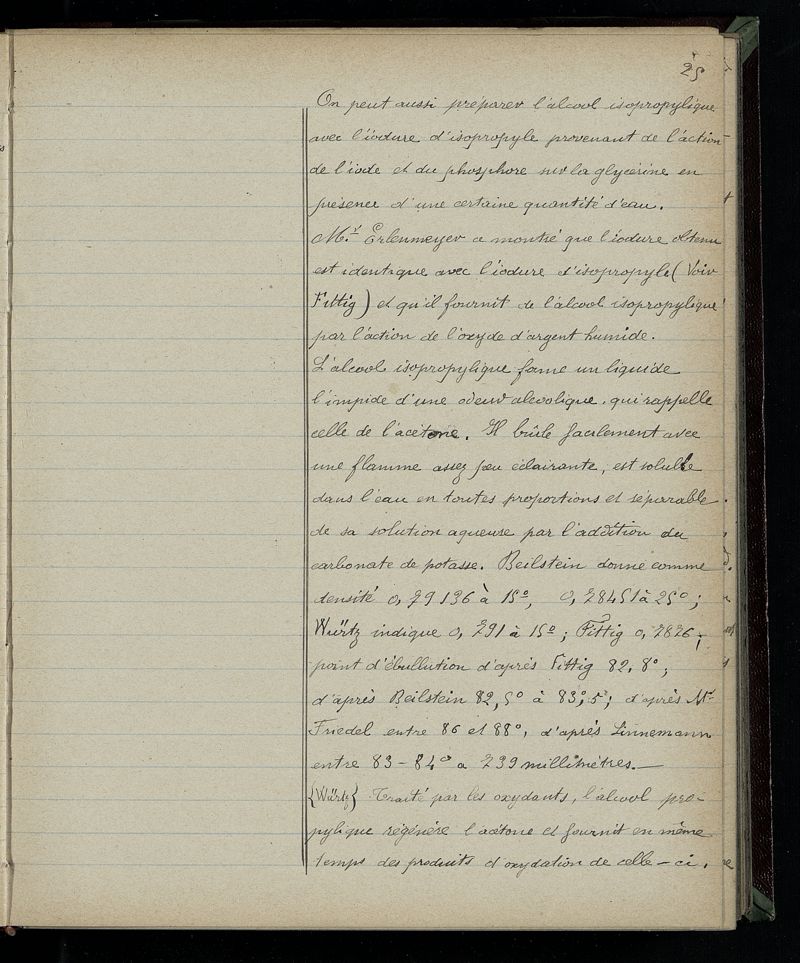 25
On peut aussi préparer l'alcool isopropylique
avec l'iodure d'isopropyle provenant de l'action
de l'iode et du phosphore sur la glycérine en
présence d'une certaine quantité d'eau.
Mr. Erlenmeyer a montré que l'iodure obtenu
est identique avec l'iodure d'isopropyle (Voir
Fittig) et qu'il fournit de l'alcool isopropylique
par l'action de l'oxyde d'argent humide.
L'alcool isopropylique forme un liquide
l'impide d'une odeur alcoolique, qui rappelle
celle de l'acétone. Il brûle facilement avec
une flamme assez peu éclairante, est soluble
dans l'eau en toutes proportions et séparable
de sa solution aqueuse par l'addition du
carbonate de potasse. Beilstein donne comme
densité 0,79136 à 15º, 0,78451 à 25º;
Würtz indique 0,791 à 15º; Fittig 0,7876;
point d'ébullution d'après Fittig 82,8º;
d'après Beilstein 82,5º à 83º,5; d'après Mr
Friedel entre 86 et 88º, d'après Linnemann
entre 83-84º a 739 millimètres.—
{Würtz} Traité par les oxydants, l'alcool pro-
pylique régénère l'acétone et fournit en même
temps des produits d'oxydation de celle-ci.